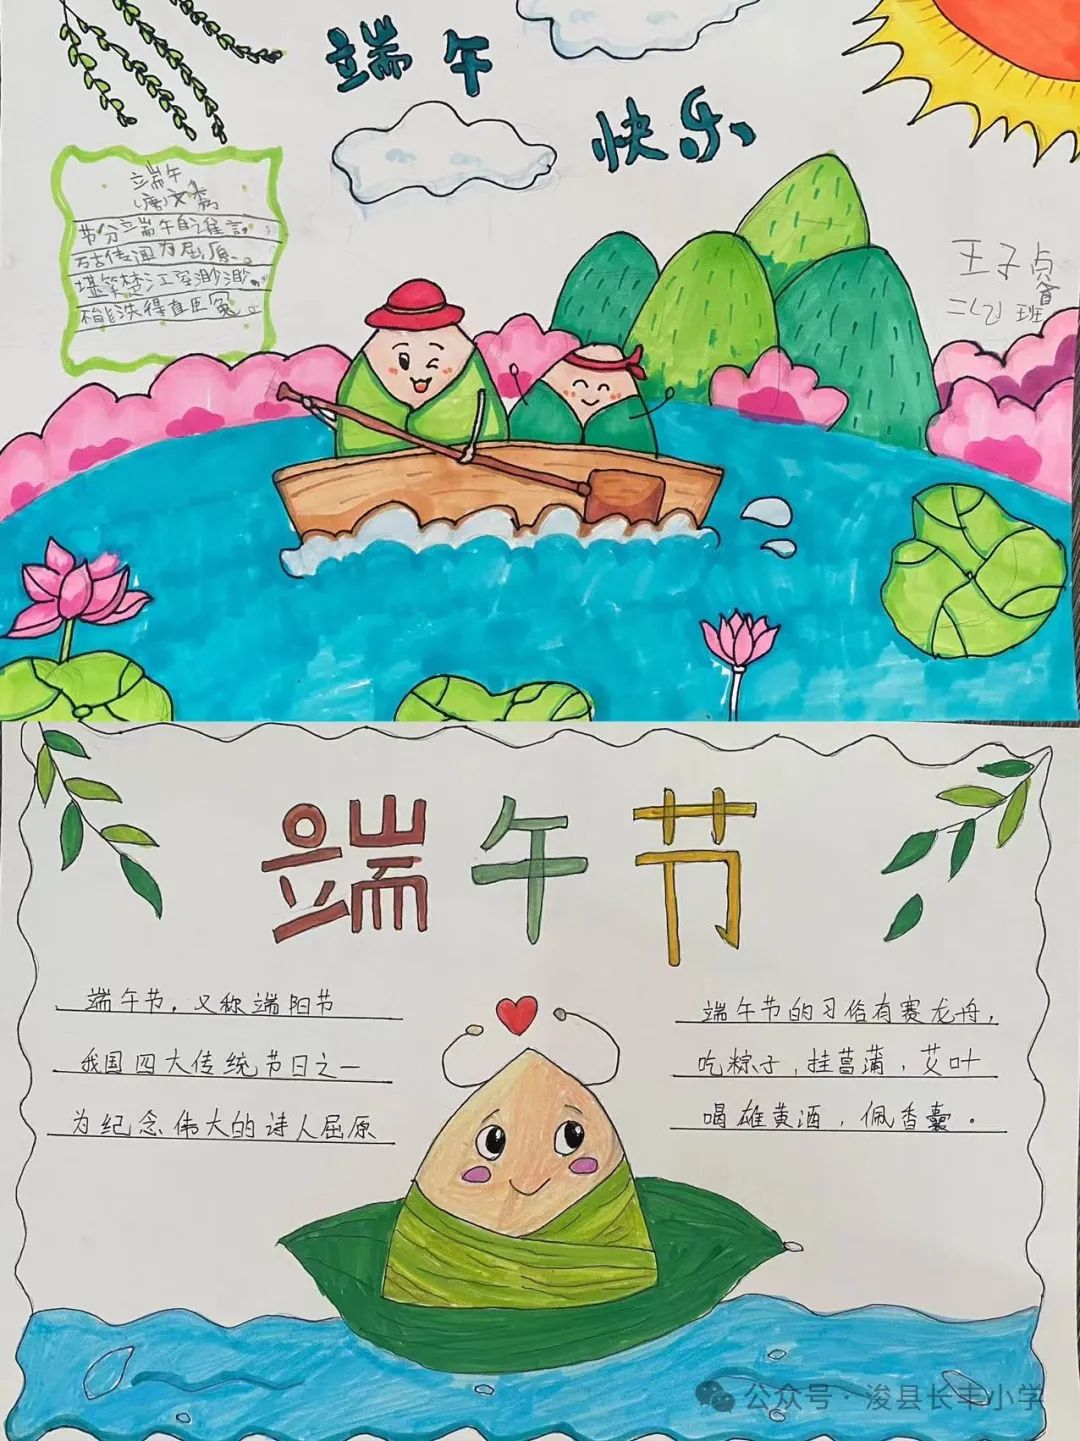 端午
快乐
端午
(唐)文秀
节分端午自谁言,
万古传闻为屈原。
堪笑楚江空渺渺,
不能洗得直臣冤。
王子
二(2)班
端午节
端午节,又称端阳节
我国四大传统节日之一
为纪念伟大的诗人屈原
端午节的习俗有赛龙舟,
吃粽子,挂菖蒲,艾叶
喝雄黄酒,佩香囊。
公众号·浚县长丰小学